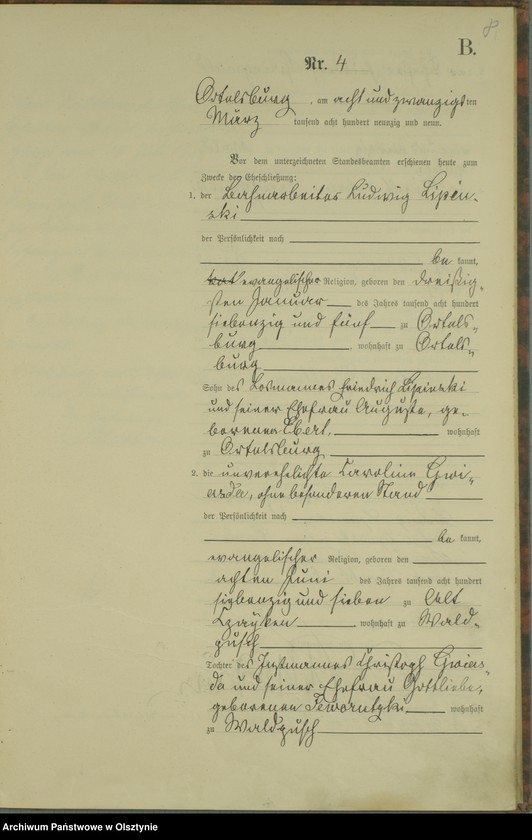 B.
Nr. 4
Ortelsburg, am acht und zwanzigsten
März tausend acht hundert neunzig und neun.
Vor dem unterzeichneten Standesbeamten erschienen heute zum
Zwecke der Eheschließung:
1. der Bahnarbeiter Ludwig Lipin-
ski
der Persönlichkeit nach
be kannt,
evangelischer Religion, geboren den dreißig-
sten Januar des Jahres tausend acht hundert
siebenzig und fünf zu Ortels-
burg, wohnhaft zu Ortels-
burg
Sohn des Losmannes Friedrich Lipinski
und seiner Ehefrau Auguste, ge-
borenen Ebert, wohnhaft
zu Ortelsburg
2. die unverehelichte Caroline Gwi-
asda, ohne besonderen Stand
der Persönlichkeit nach
be kannt,
evangelischer Religion, geboren den
achten Juni des Jahres tausend acht hundert
siebenzig und sieben zu Alt
Czayken wohnhaft zu Wald-
pusch
Tochter des Instmannes Christoph Gwias-
da und seiner Ehefrau Gottliebe,
geborenen wohnhaft
zu Waldpusch
Archiwum Państwowe w Olsztynie